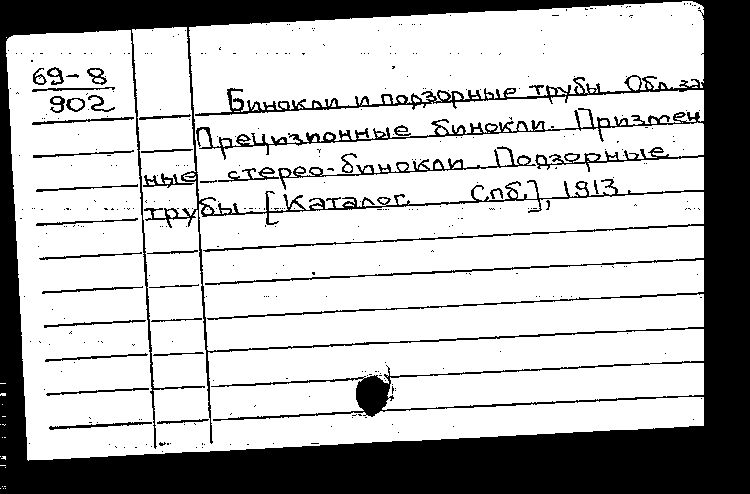 69-8
902
Бинокли и подзорные трубы. Обл. за
Прецизионные бинокли. Призмен
ные стерео-бинокли. Подзорные
трубы. [Каталог. Спб.], 1913.